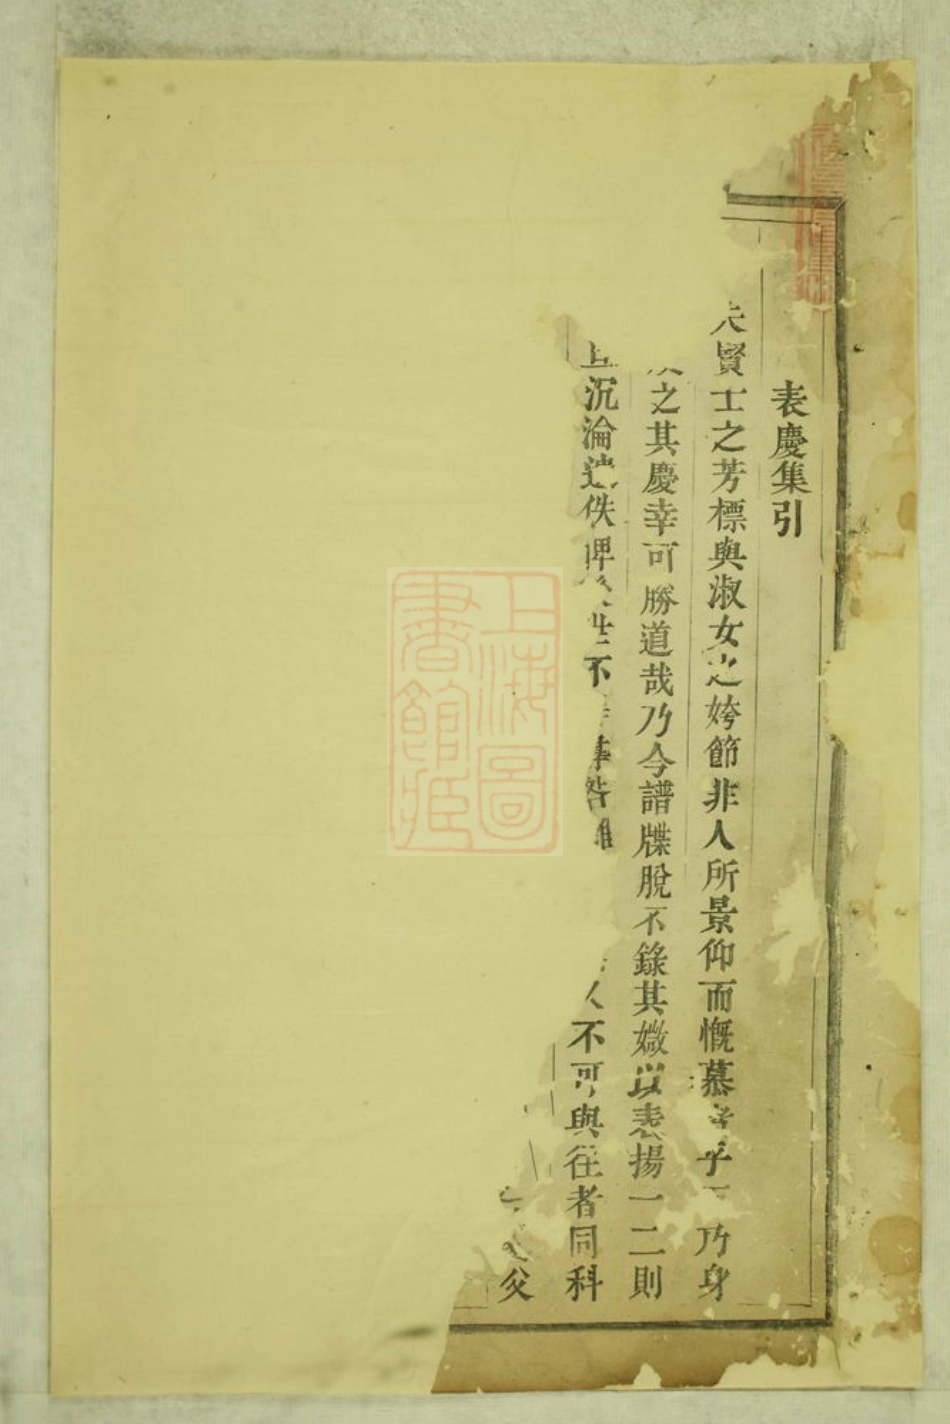 表慶集引
賢士之芳標與淑女之姱節非人所景仰而慨慕者乎乃身
之其慶幸可勝道哉乃今譜牒脫不錄其媺以表揚一二則
沉淪遺佚不人不可與往者同科
父
上海圖書館藏